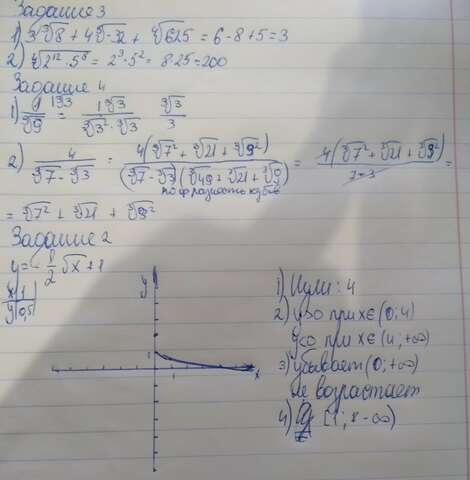 Задание 3
1) 3∛8 + 4⁵√-32 + ⁴√625 = 6 - 8 + 5 = 3
2) ⁴√2¹² · 5⁸ = 2³ · 5² = 8 · 25 = 200
Задание 4
1) 1/∛9 = 1∛3/∛3² · ∛3 ∛3/3
2) 4/∛7 - ∛3 = 4(∛7² + ∛21 + ∛9²)/(∛7 - ∛3)(∛49 + ∛21 + ∛9) = 4(∛7² + ∛21 + ∛9²)/7-3 =
по ф разность кубов
= ∛7² + ∛21 + ∛9²
Задание 2
y = -1/2 √x + 1
x 1
y 0,5
y
1
1
x
1) Нули: 4
2) y>0 при x∈(0; 4)
y<0 при x∈(4; +∞)
3) убывает (0; +∞)
не возрастает
4) [1; - ∞)